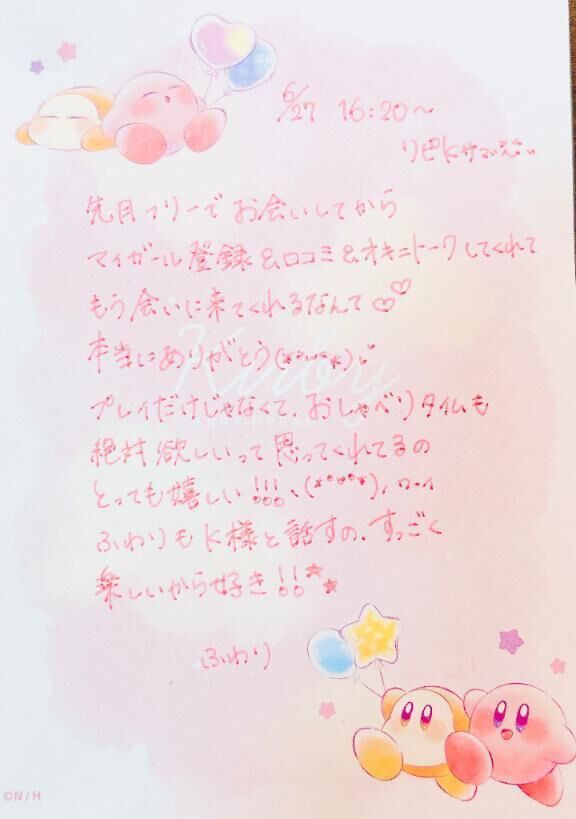 6/27 16:20〜
リピKサマ
先日フリーで お会いしてから
マイガール登録&口コミ&オキニトークしてくれて
もう会いに来てくれるなんて♡♡
本当にありがとう
Kirby
プレイだけじゃなくて、おしゃべりタイムも
絶対欲しいって思ってくれてるの
とっても嬉しい!!!
ふわりもK様と話すの、すっごく
楽しいから好き!!
ふわり
©N/H